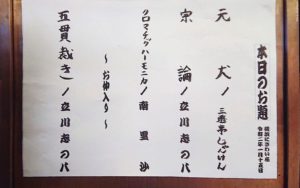 本日のお題
横浜にぎわい座
令和二年一月十五日
元犬ノ三遊亭じゃんけん
宗論ノ立川志の八
クロマチックハーモニカノ南里沙
〜お仲入り〜
五貫裁きノ立川志の八